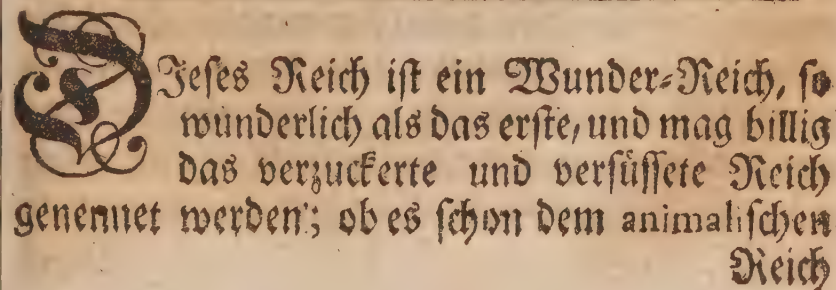 DJeses Reich ist ein Wunder-Reich, so
wunderlich als das erste, und mag billig
das verzuckerte und versüssete Reich
genennet werden; ob es schon dem animalischen
Reich